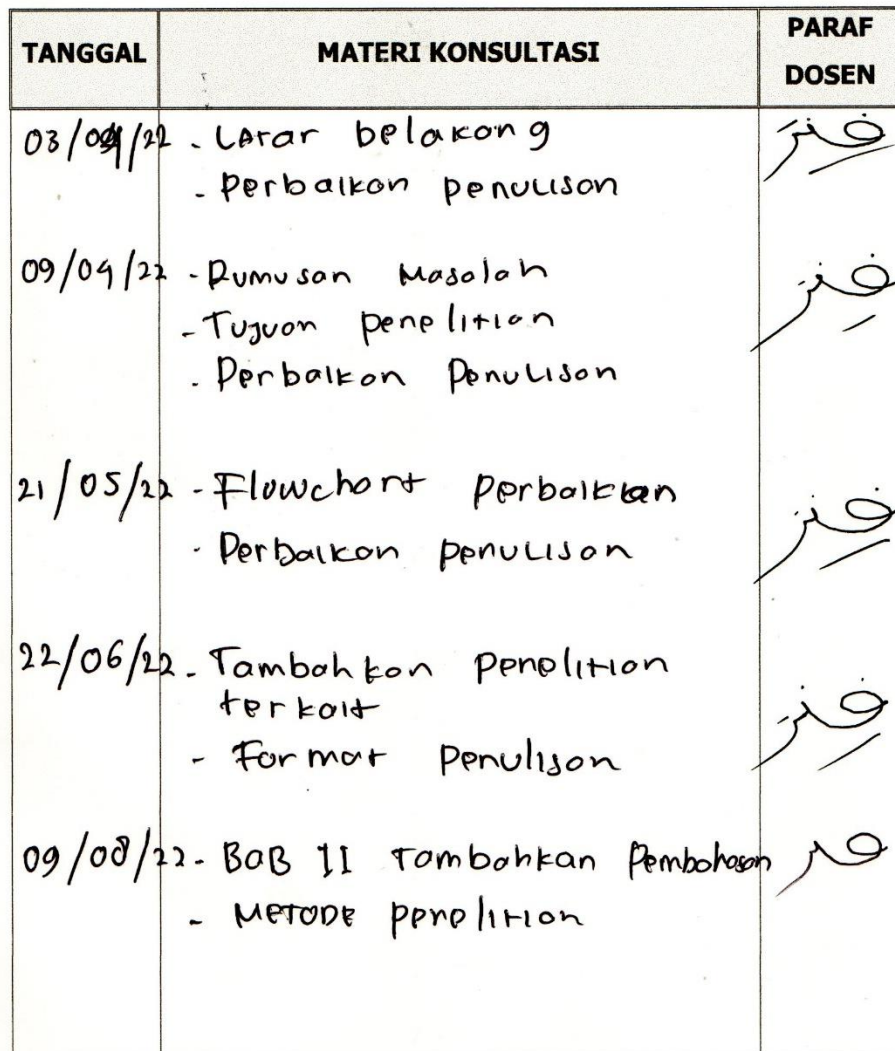 TANGGAL MATERI KONSULTASI PARAF DOSEN
03/04/22 - Latar belakang
- Perbaikan penulisan
09/04/22 - Rumusan Masalah
- Tujuan penelitian
- Perbaikan Penulisan
21/05/22 - Flowchart Perbaikan
- Perbaikan penulisan
22/06/22 - Tambahkan Penelitian
terkait
- Format Penulisan
09/08/22 - BAB II Tambahkan Pembahasan
- METODE penelitian